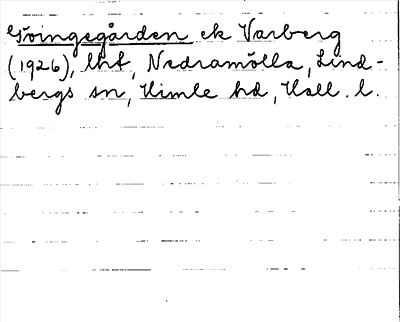 Göingegården ek Varberg
(1926), lht, Nedramölla, Lind-
bergs sn, Himle hd, Hall. l.